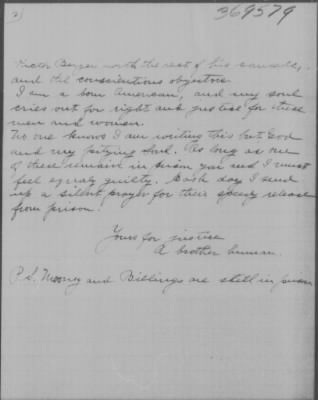 2)
369579
Victor Berger worth the rest of his
and the conscientious objectors.
I am a born American, and my soul
cries out for right and justice for these
men and women.
No one knows I am writing this but God
and my pitying soul. As long as one
of these remains in prison you and I must
feel equaly guilty. Each day I send
up a silent prayer for their speedy release
from prison.
Yours for justice
A brother human.
P.S. Mooney and Billings are still in prison